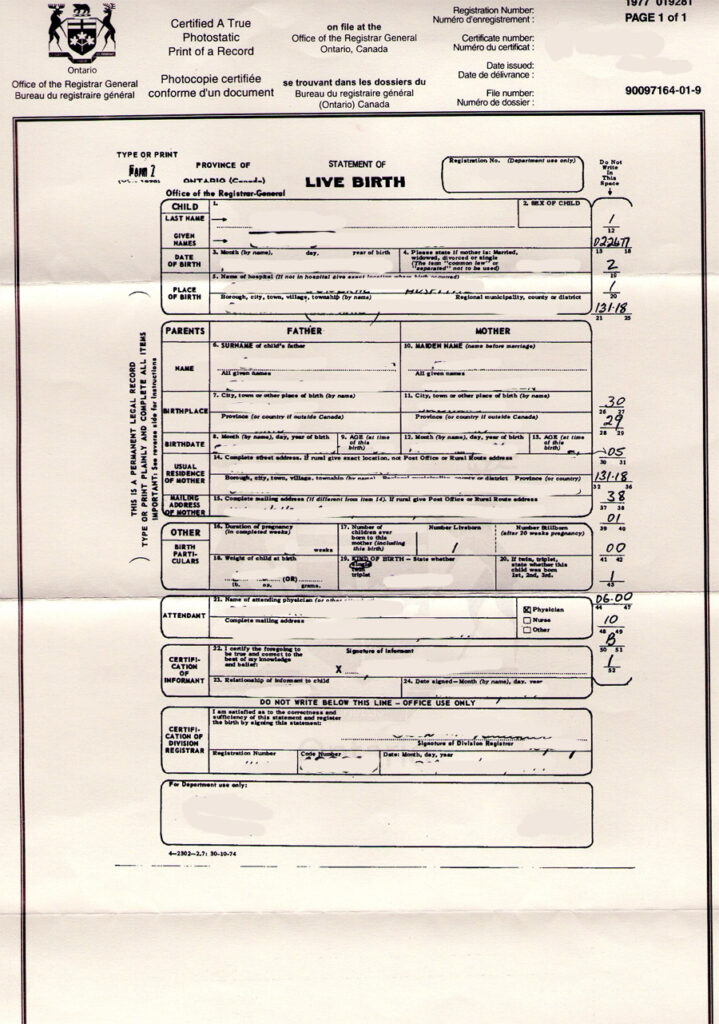 Ontario
Office of the Registrar General
Bureau du registraire général
Certified A True
Photostatic
Print of a Record
Photocopie certifiée
conforme d'un document
on file at the
Office of the Registrar General
Ontario, Canada
se trouvant dans les dossiers du
Bureau du registraire général
(Ontario) Canada
Registration Number:
Numéro d'enregistrement :
Certificate number:
Numéro du certificat :
Date issued:
Date de délivrance :
File number:
Numéro de dossier :
1977 019281
PAGE 1 of 1
90097164-01-9
TYPE OR PRINT
Form 2
PROVINCE OF
ONTARIO (Canada)
Office of the Registrar-General
STATEMENT OF
LIVE BIRTH
Registration No. (Department use only)
Do Not
Write
In
This
Space
CHILD
LAST NAME
GIVEN
NAMES
1.
2. SEX OF CHILD
DATE
OF BIRTH
3. Month (by name), day, year of birth
4. Please state if mother is: Married,
widowed, divorced or single
(The term "common law" or
"separated" not to be used)
PLACE
OF BIRTH
5. Name of hospital (If not in hospital give exact location where birth occurred)
Borough, city, town, village, township (by name)
Regional municipality, county or district
PARENTS
FATHER
MOTHER
NAME
6. SURNAME of child's father
All given names
10. MAIDEN NAME (name before marriage)
All given names
BIRTHPLACE
7. City, town or other place of birth (by name)
Province (or country if outside Canada)
11. City, town or other place of birth (by name)
Province (or country if outside Canada)
BIRTHDATE
8. Month (by name), day, year of birth
9. AGE (at time
of this
birth)
12. Month (by name), day, year of birth
13. AGE (at time
of this
birth)
USUAL
RESIDENCE
OF MOTHER
14. Complete street address. If rural give exact location, not Post Office or Rural Route address
Borough, city, town, village, township (by name)
Regional municipality, county or district
Province (or country)
MAILING
ADDRESS
OF MOTHER
15. Complete mailing address (if different from item 14). If rural give Post Office or Rural Route address
OTHER
BIRTH
PARTI-
CULARS
16. Duration of pregnancy
(In completed weeks)
weeks
17. Number of
children ever
born to this
mother (including
this birth)
Number Liveborn
1
Number Stillborn
(after 20 weeks pregnancy)
18. Weight of child at birth
(OR)
lb. oz. grams.
19. KIND OF BIRTH – State whether
single
twin
triplet
20. If twin, triplet,
state whether this
child was born
1st, 2nd, 3rd.
ATTENDANT
21. Name of attending physician (or other
Complete mailing address
Physician
Nurse
Other
CERTIFI-
CATION
OF
INFORMANT
22. I certify the foregoing to
be true and correct to the
best of my knowledge
and belief:
Signature of informant
X
23. Relationship of informant to child
24. Date signed—Month (by name), day, year
DO NOT WRITE BELOW THIS LINE – OFFICE USE ONLY
CERTIFI-
CATION OF
DIVISION
REGISTRAR
I am satisfied as to the correctness and
sufficiency of this statement and register
the birth by signing this statement:
Signature of Division Registrar
Registration Number
Code Number
Date: Month, day, year
For Department use only:
4—2302—2.7: 30-10-74
THIS IS A PERMANENT LEGAL RECORD
TYPE OR PRINT PLAINLY AND COMPLETE ALL ITEMS
IMPORTANT: See reverse side for instructions
1
12
022677
13 18
2
19
1
20
131-18
21 25
30
26 27
29
28 29
05
30 31
131-18
32 36
38
37 38
01
39 40
00
41 42
1
43
06.00
44 47
10
48 49
B
50 51
1
52